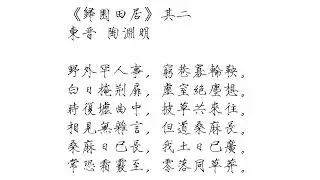 《歸園田居》其二
東晉 陶淵明
野外罕人事，窮巷寡輪鞅。
白日掩荊扉，虛室絕塵想。
時復墟曲中，披草共來往。
相見無雜言，但道桑麻長。
桑麻日已長，我土日已廣。
常恐霜霰至，零落同草莽。